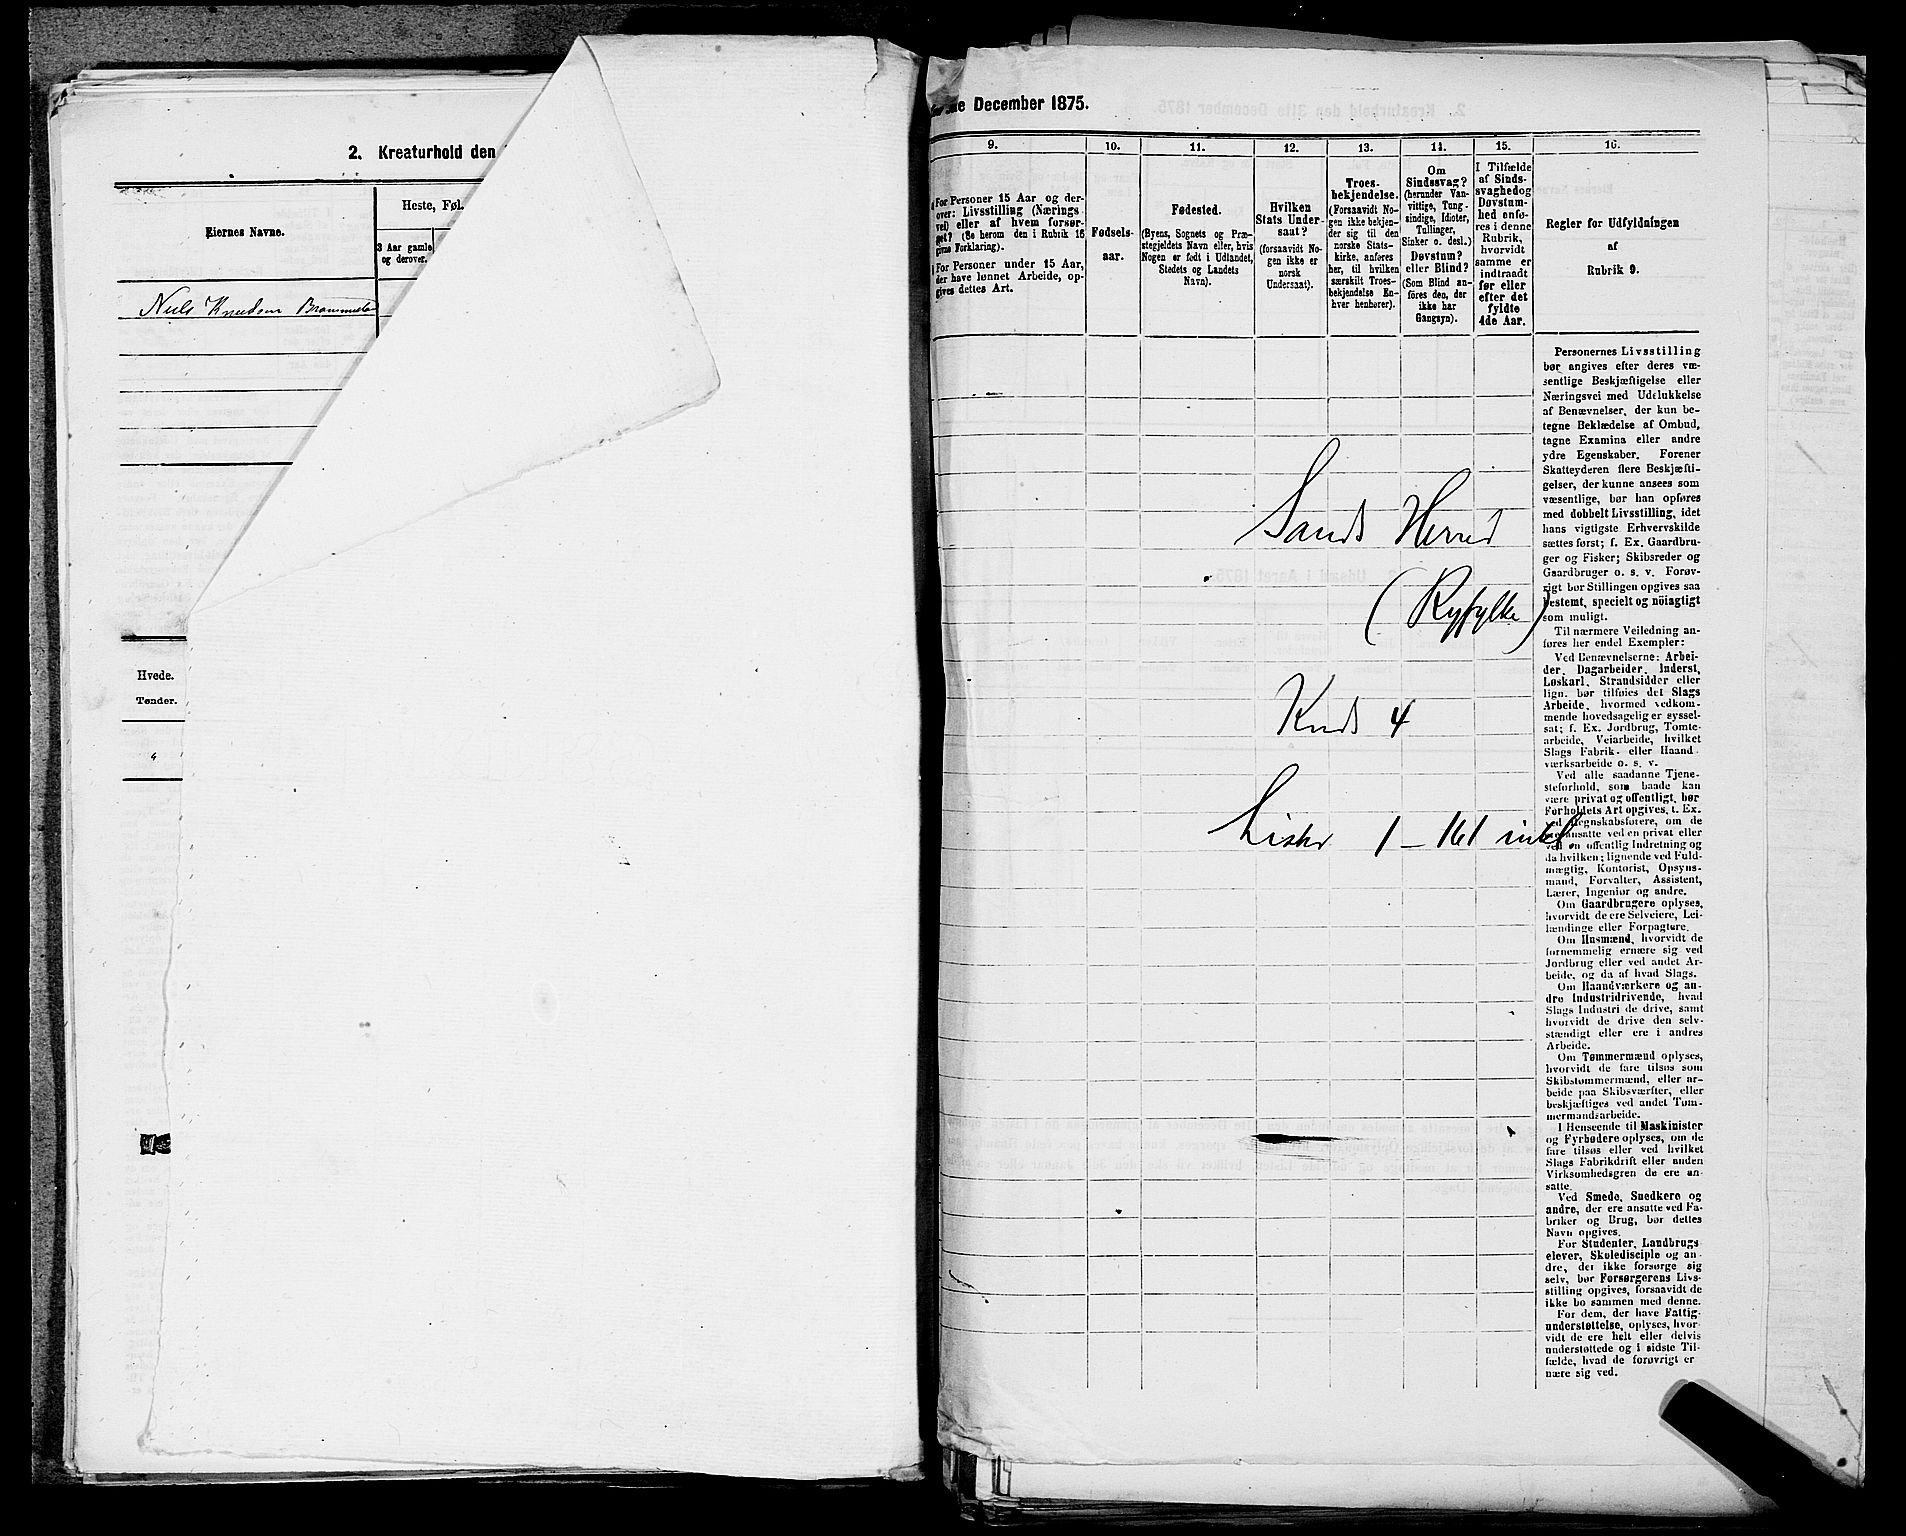 2. Kreaturhold den
Eiernes Navne.
Heste, Føl.
3 Aar gamle
og derover.
Niels Knudsen
Hvede.
Tønder.
"
December 1875.
9.
10.
11.
12.
13.
14.
15.
16.
For Personer 15 Aar og der-
over: Livsstilling (Nærings
vei) eller af hvem forsør-
get? (Se herom den i Rubrik 16
givne Forklaring).
For Personer under 15 Aar,
der have lønnet Arbeide, op-
gives dettes Art.
Fødsels-
aar.
Fødested.
(Byens, Sognets og Præ-
stegjeldets Navn eller, hvis
Nogen er født i Udlandet,
Stedets og Landets
Navn).
Hvilken
Stats Under-
saat?
(forsaavidt No-
gen ikke er
norsk
Undersaat).
Troes-
bekjendelse.
(Forsaavidt No-
gen ikke bekjen-
der sig til den
norske Stats-
kirke, anføres
her, til hvilken
særskilt Troes-
bekjendelse En-
hver henhører).
Om
Sindssvag?
(herunder Van-
vittige, Tung-
sindige, Idioter,
Tullinger,
Sinker o. desl.)
Døvstum?
eller Blind?
(Som Blind an-
føres den, der
ikke har
Gangsyn).
I Tilfælde
af Sinds-
svaghed og
Døvstum-
hed onfø-
res i denne
Rubrik,
hvorvidt
samme er
indtraadt
før eller
efter det
fyldte
4de Aar.
Regler for Udfyldningen
af
Rubrik 9.
Personernes Livsstilling
bør angives efter deres væ-
sentlige Beskjæftigelse eller
Næringsvei med Udelukkelse
af Benævnelser, der kun be-
tegne Beklædelse af Ombud,
tagne Examina eller andre
ydre Egenskaber. Forener
Skatteyderen flere Beskjæfti-
gelser, der kunne ansees som
væsentlige, bør han opføres
med dobbelt Livsstilling, idet
hans vigtigste Erhvervskilde
sættes først; f. Ex. Gaardbru-
ger og Fisker; Skibsreder og
Gaardbruger o. s. v. Forøv-
rigt bør Stillingen opgives saa
bestemt, specielt og nöiagtigt
som muligt.
Til nærmere Veiledning an-
føres her endel Exempler:
Ved Benævnelserne: Arbei-
der, Dagarbeider, Inderst,
Løskarl, Strandsidder eller
lign. bør tilføies det Slags
Arbeide, hvormed vedkom-
mende hovedsagelig er syssel-
sat; f. Ex. Jordbrug, Tomte-
arbeide, Veiarbeide, hvilket
Slags Fabrik- eller Haand-
værksarbeide o. s. v.
Ved alle saadanne Tjene-
steforhold, som baade kan
være privat og offentligt, bør
Forholdets Art opgives, t. Ex.
ved Regnskabsførere, om de
ere ansatte ved en privat eller
ved en offentlig Indretning og
da hvilken; lignende ved Fuld-
mægtig, Kontorist, Opsyns-
mand, Forvalter, Assistent,
Lærer, Ingeniør og andre.
Om Gaardbrugere oplyses,
hvorvidt de ere Selveiere, Lei-
lændinge eller Forpagtere.
Om Husmænd, hvorvidt de
fornemmelig ernære sig ved
Jordbrug eller ved andet Ar-
beide, og da af hvad Slags.
Om Haandværkere og an-
dre Industridrivende, hvad
Slags Industri de drive, samt
hvorvidt de drive den selv-
stændigt eller ere i andres
Arbeide.
Om Tømmermænd oplyses,
hvorvidt de fare tilsøs som
Skibstømmermænd, eller ar-
beide paa Skibsværfter, eller
beskjæftiges ved andet Tøm-
mermandsarbeide.
I Henseende til Maskinister
og Fyrbødere oplyses, om de
fare tilsøs eller ved hvilket
Slags Fabrikdrift eller anden
Virksomhedsgren de ere an-
satte.
Ved Smede, Snedkere og
andre, der ere ansatte ved Fa-
briker og Brug, bør dettes
Navn opgives.
For Studenter, Landbrugs
elever, Skoledisciple og an-
dre, der ikke forsørge sig
selv, bør Forsørgerens Livs-
stilling opgives, forsaavidt de
ikke bo sammen med denne.
For dem, der have Fattig-
understøttelse, oplyses, hvor-
vidt de ere helt eller delvis
understøttede og i sidste Til-
fælde, hvad de forøvrigt er
nære sig ved.
Sands Herred
(Ryfylke)
Kreds 4
Lister 1 - 161 inkl.